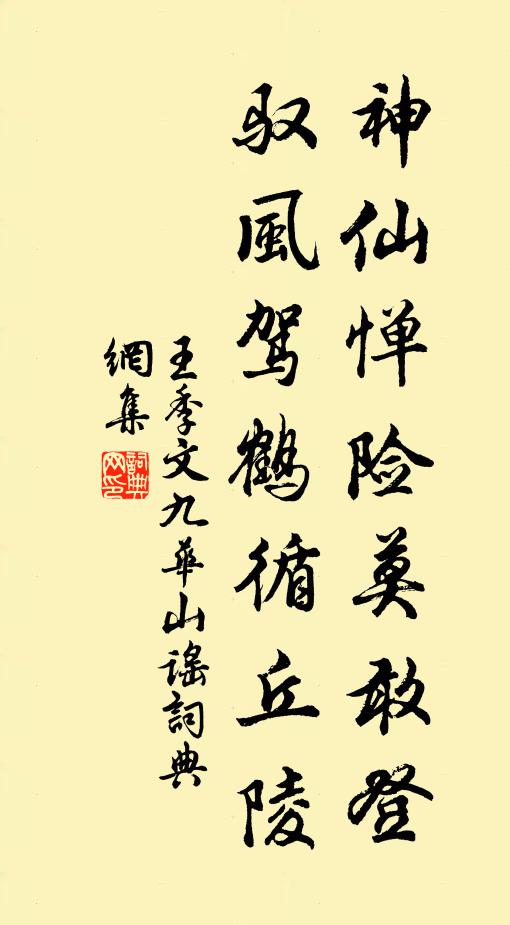 神仙惮险莫敢登
驭風驾鹤循丘陵
王季文九华山谣詞典
網集
詞典
网印